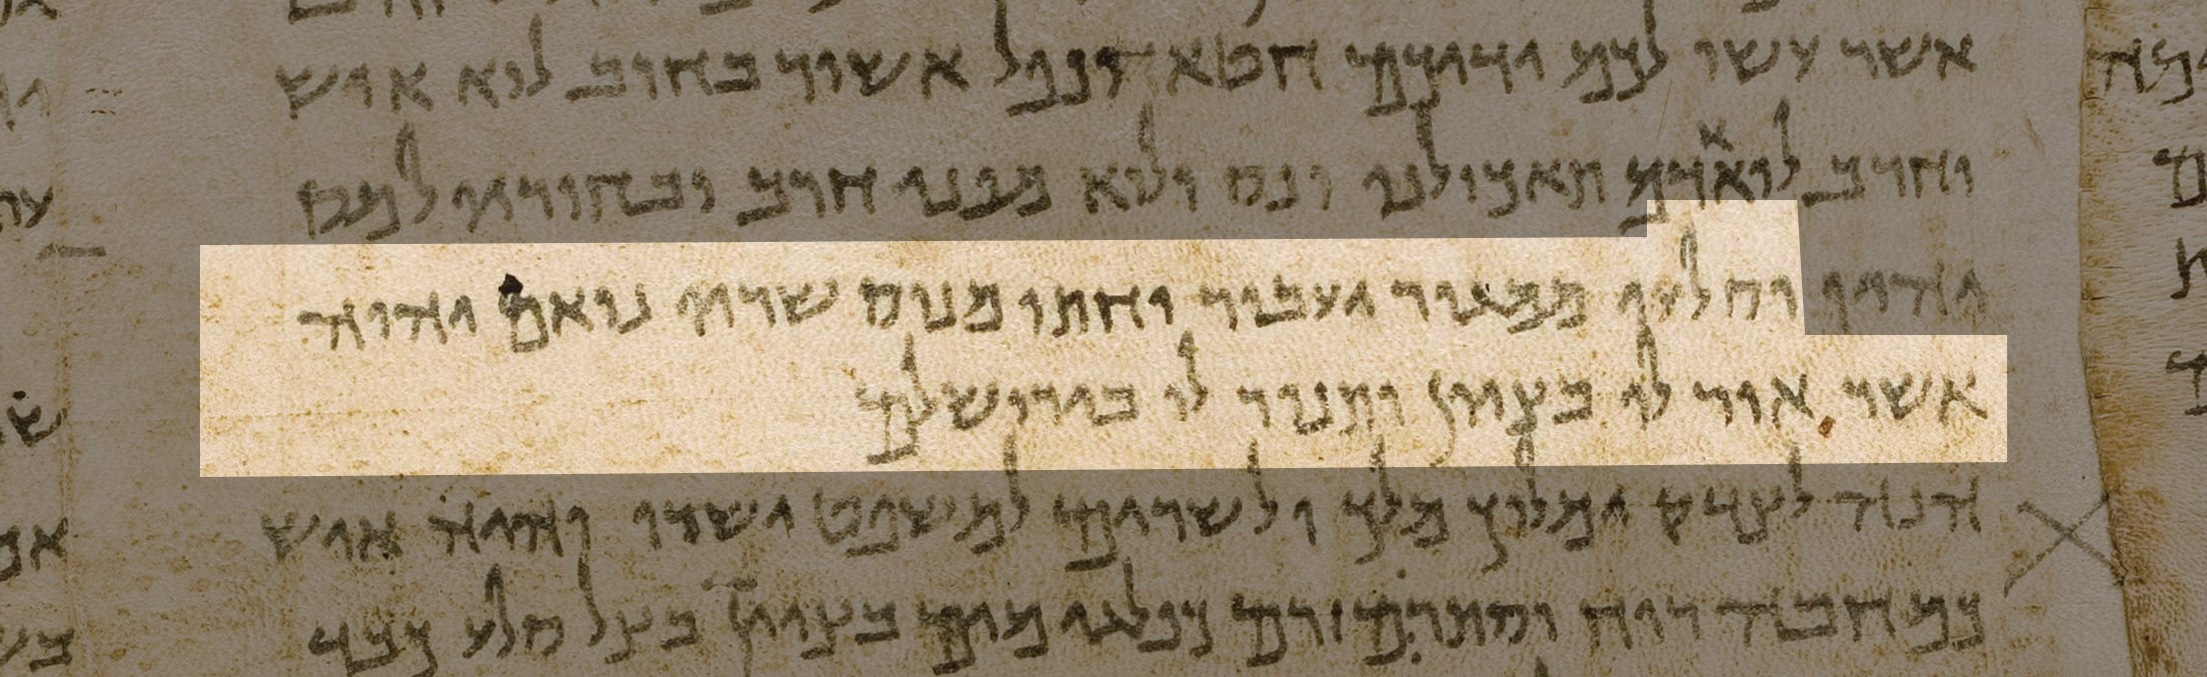 אשר עשו לכמ ידיכם חטא ונפל אשור בחרב לוא איש
וחרב לוא אדמ תאכולנו ונס ולוא מפני חרב ובחוריו למס
יהיו וסלעו ממגור יעבור וחתו מנוס שריו נואם יהוה
אשר אור לו בציון ותנור לו בירושלם
הנה לצדק ימלוך מלך ולשרים למשפט ישרו והיה איש
כמחבה רוח וסתרם זרם כפלגי מים בציון בצל סלע כבד